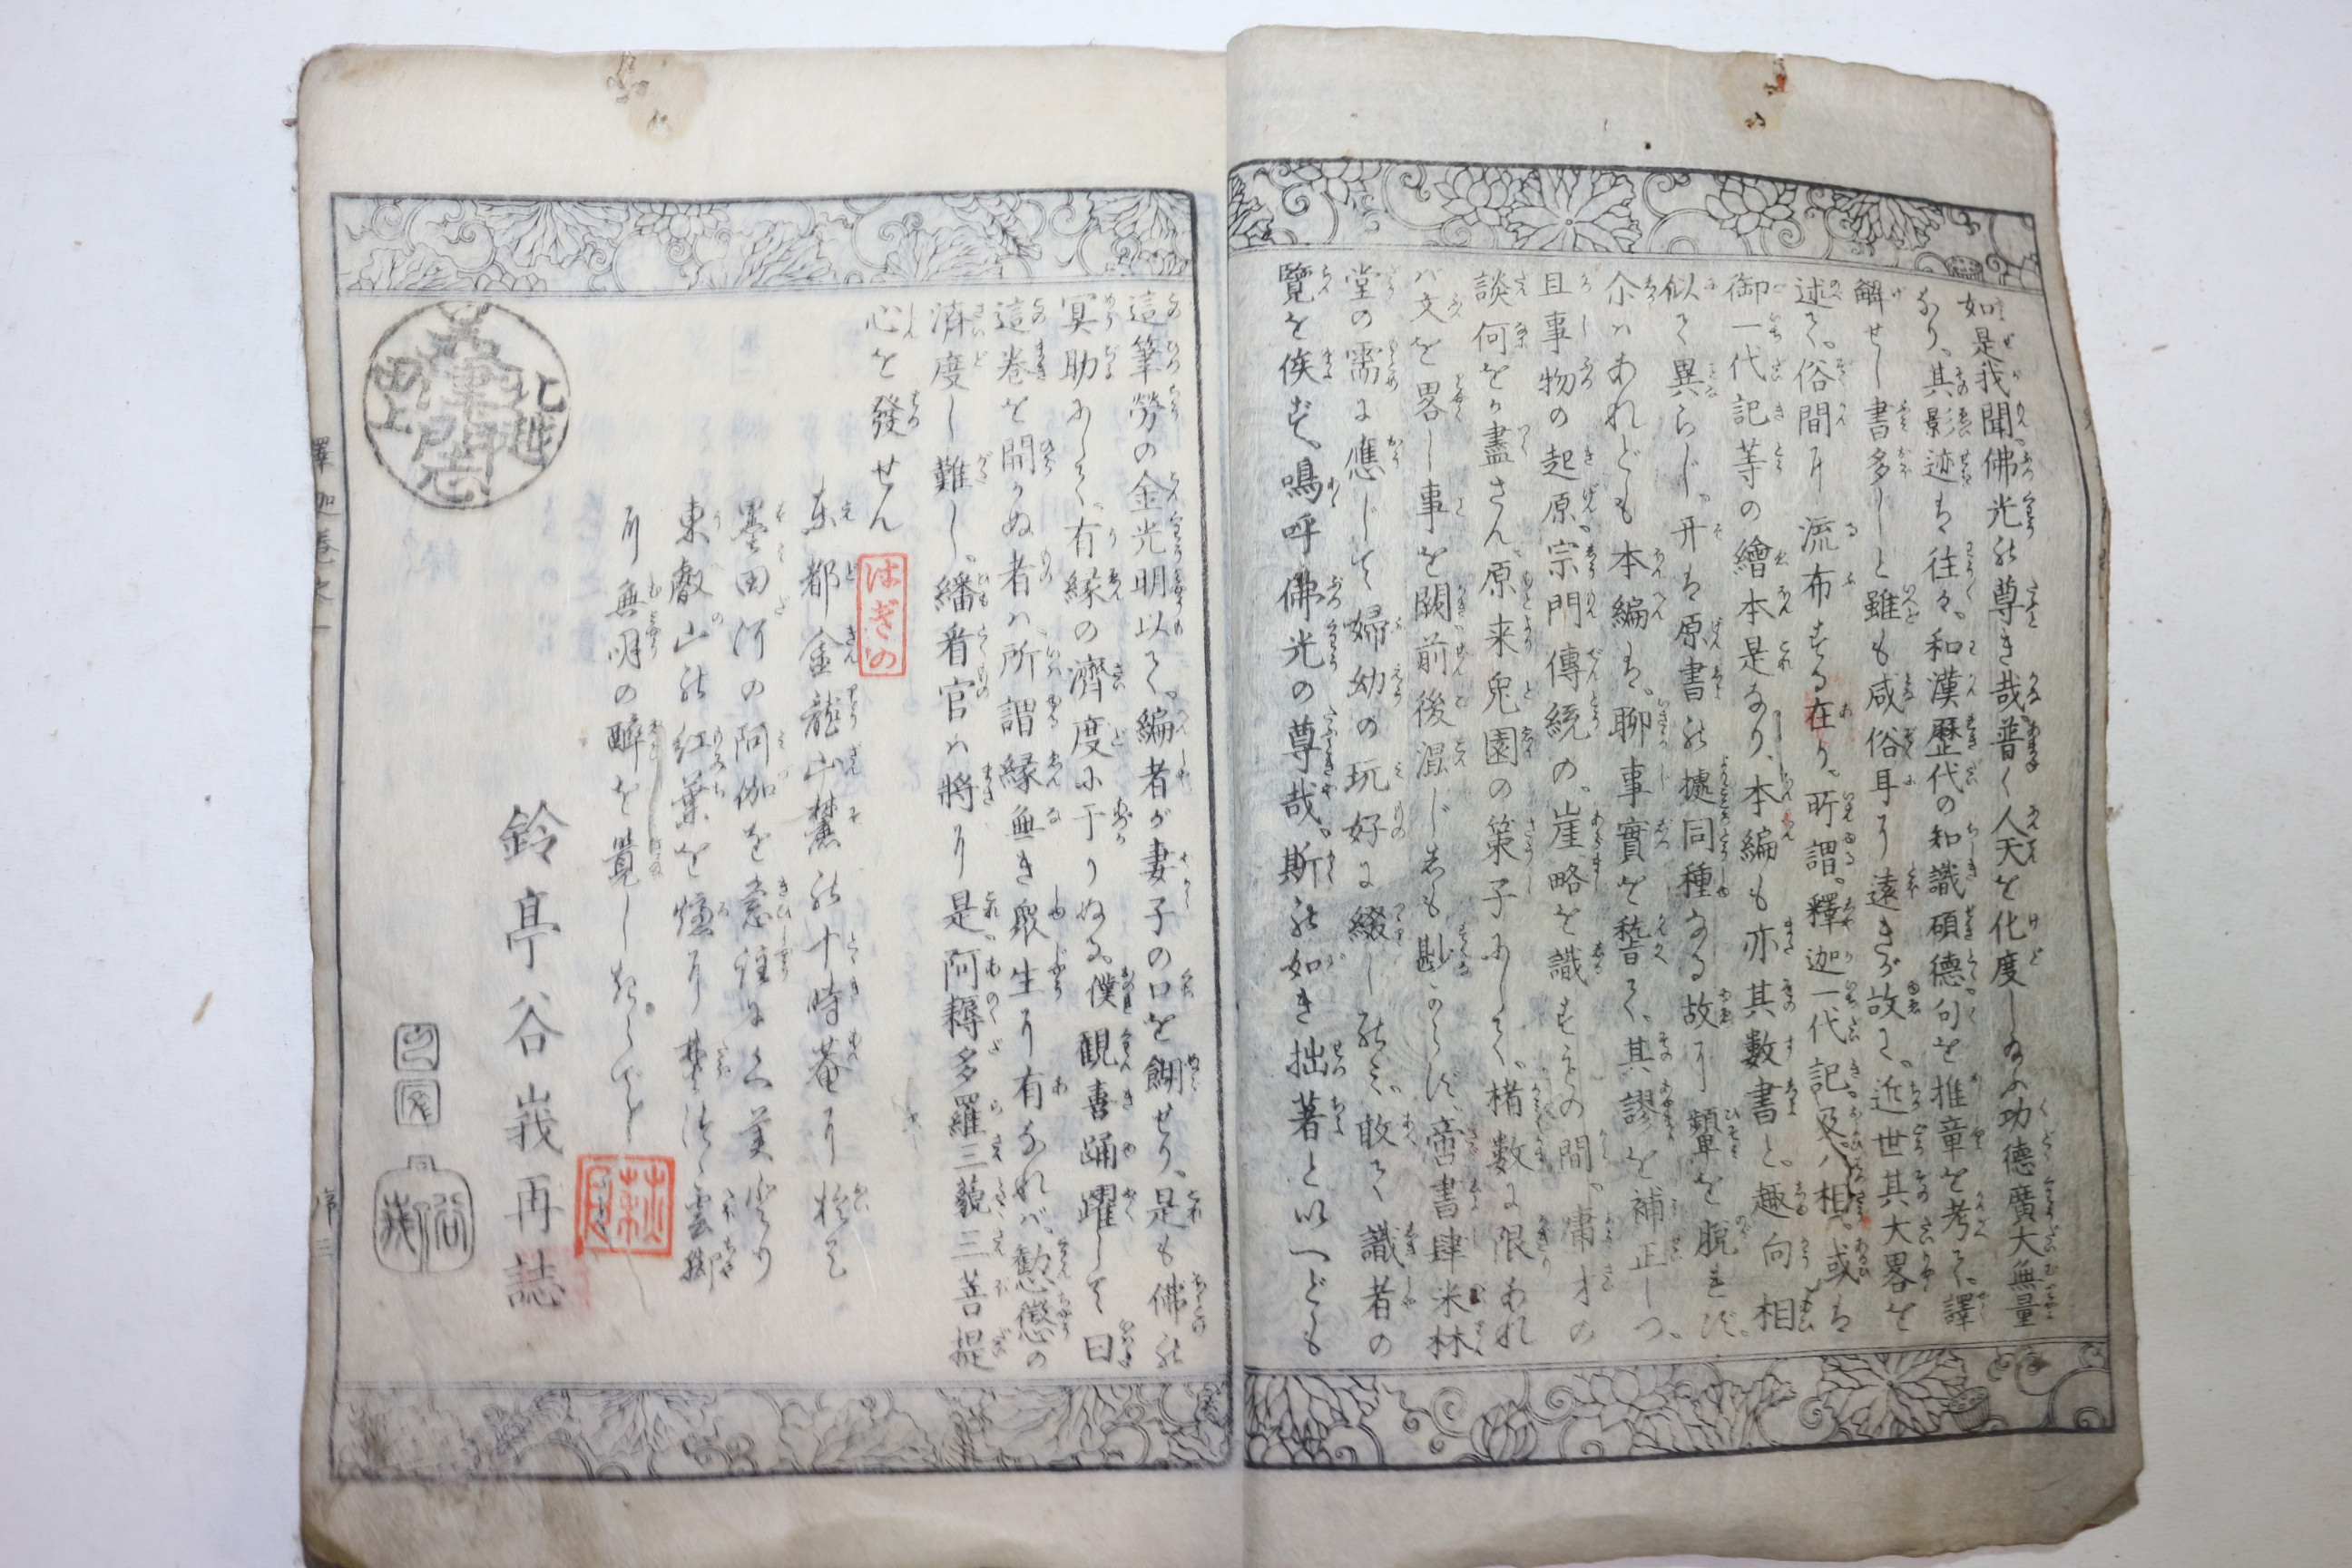 如是我聞佛光の尊き哉普く人天を化度し給ふ功德廣大無量
なり、其影迹は往々、和漢歷代の知識碩德句を推章を考て、譯
解せし書多しと雖も咸俗耳に遠きが故に、近世其大畧を
述て、俗間に流布する在り、所謂、釋迦一代記、及八相、或は
御一代記等の繪本是なり、本編も亦其數書と、趣向相
似て異らじ、开は原書の據同種なる故に顰を脱れず、
尒ハあれども本編は、聊事實を嵆て、其謬を補正しつ、
且事物の起原、宗門傳統の、崖略を識す、その間、庸才の
談何をか盡さん、原来兔園の策子にして、楮數に限あれ
バ文を畧し事を闕前後混じ尠からず、啻書肆米林
堂の需に應じて婦幼の玩好に綴し能ミ、敢て識者の
覽を俟ず、鳴呼佛光の尊哉、斯の如き拙著と以へども
這筆勞の金光明以て、編者が妻子の口を餬せり、是も佛の
冥助にして、有縁の濟度に于りぬる、僕觀喜踊躍して曰
這卷を開かぬ者ハ所謂縁無き衆生に有なれバ、勸懲の
濟度し難し、繙看官ハ將に是、阿耨多羅三藐三菩提
心を發せん
はぎの
東都金龍山麓の十時菴に於て
墨田河の阿伽を
東叡山の紅葉を
に無明の醉を覺し
鈴亭谷峩再誌
北越
田上
釋迦卷之一
序三
俗峩
萩